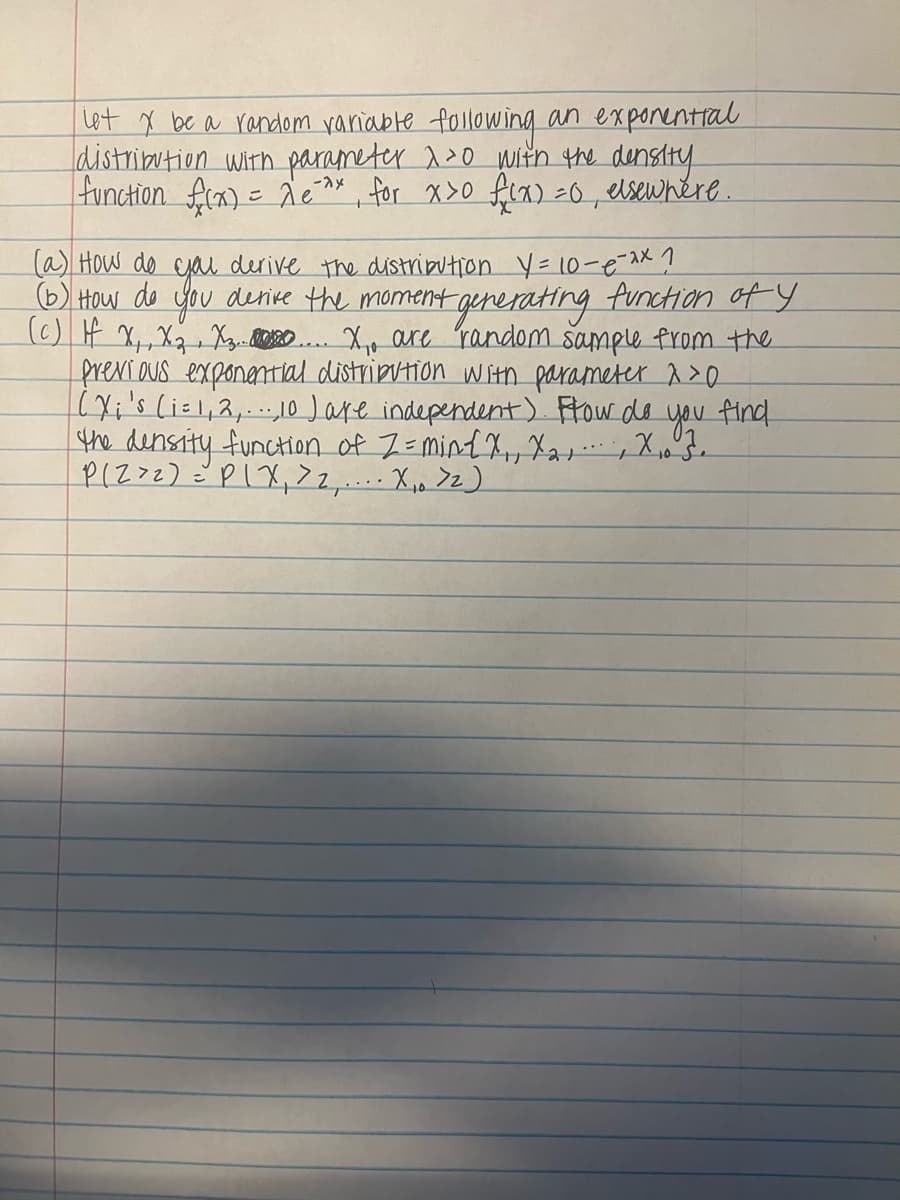 Let X be a random variable following an exponential
distribution with parameter λ>0 with the density
function fₓ(x) = λe^-λx, for x>0 fₓ(x) =0, elsewhere.
(a) How do you derive the distribution Y=10-e^-λx ?
(b) How do you derive the moment generating function of Y
(c) If X₁, X₂, X₃... .... X₁₀ are random sample from the
previous exponential distribution with parameter λ>0
(Xᵢ's (i=1,2,...,10) are independent). How do you find
the density function of Z=min{X₁, X₂, ...., X₁₀}.
P(Z>z) = P(X₁>z,.... X₁₀>z)